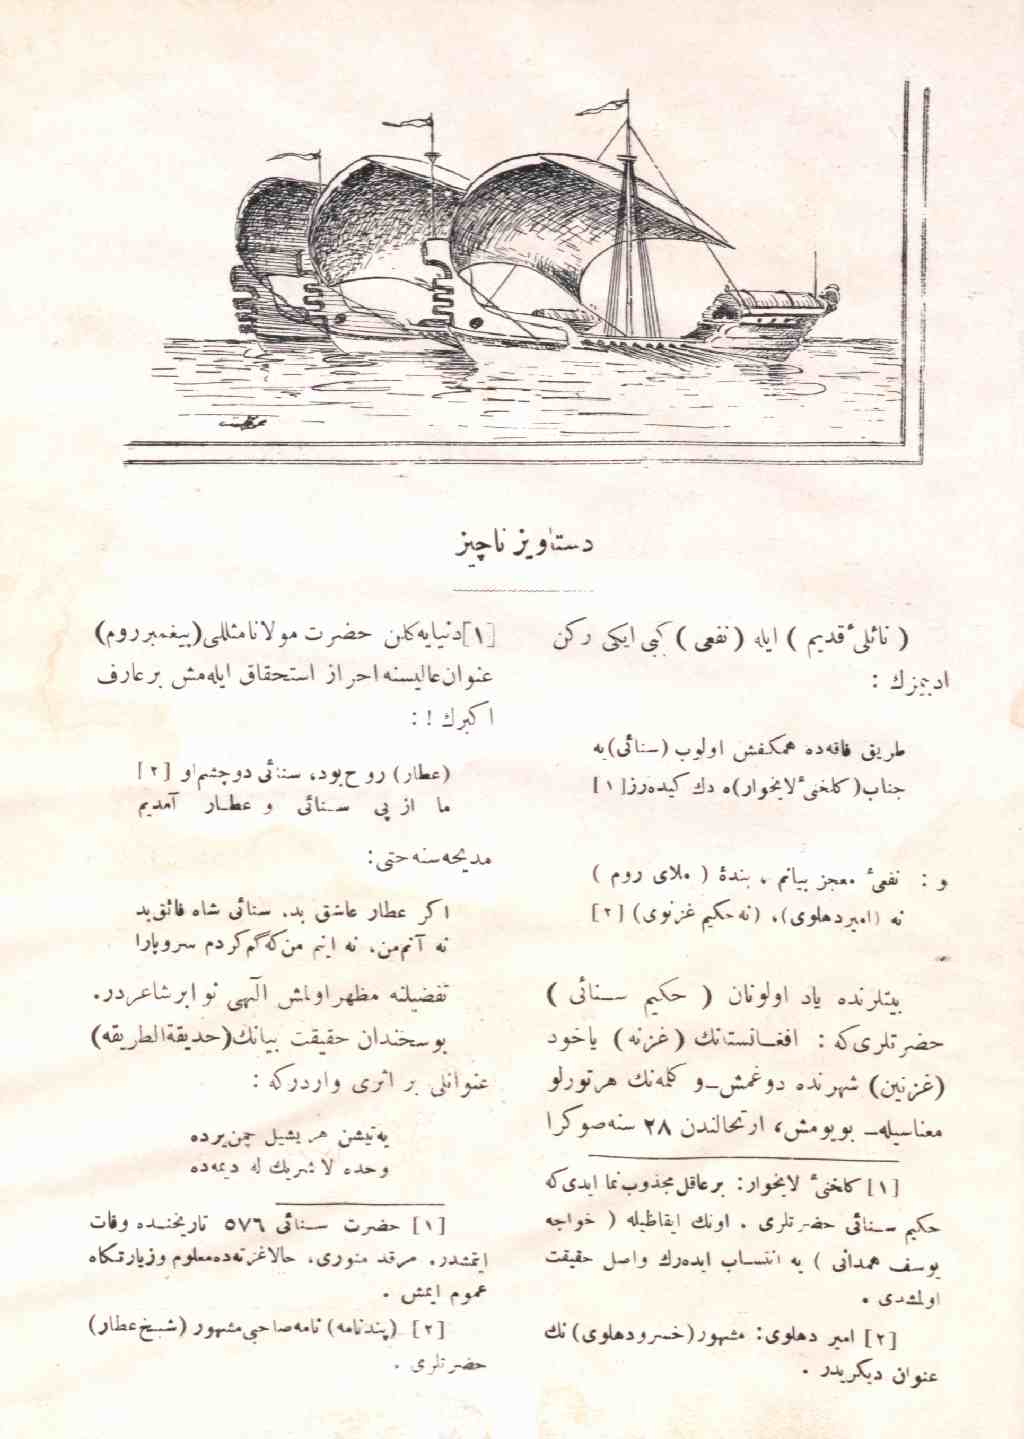 دستاویز ناچیز
( نائلیٔ قدیم ) ایله ( نفعی ) کبی ایکی رکن
ادبیزك :
طریق فاقه‌ده همکفش اولوب (سنائی)یه
جناب(کلخنیٔ لایخوار)ه دك کیده‌رز[١]
و : نفعیٔ معجز بیانم ، بندۀ ( ملای روم )
نه (امیردهلوی)، (نه‌حکیم غزنوی) [٢]
بیتلرنده یاد اولونان ( حکیم سـنائی )
حضرتلری‌که : افغـانستانك (غزنه) یاخود
(غزنین) شهرنده دوغمش_و کله‌نك هرتورلو
معناسیله_ بویومش، ارتحالندن ٢٨ سنه‌صوکرا
[١] کلخنیٔ لایخوار: برعاقل‌مجذوب‌نما ایدی‌که
حکیم سـنائی حضرتلری . اونك ایقاظیله ( خواجه
یوسف همدانی ) یه انتسـاب ایده‌رك واصل حقیقت
اولمشدی .
[٢] امیر دهلوی: مشهور(خسرودهلوی)نك
عنوان دیکریدر .
[١]دنیایه‌کلن حضرت مولانامثللی(پیغمبرروم)
عنوان‌عالیسنه احراز استحقاق ایله‌مش برعارف
اکبرك ! :
(عطار) روح‌بود، سنائی دوچشم‌او [٢]
ما از پی سـنائی و عطـار آمدیم
مدیحه‌سنه‌حتی:
اکر عطار عاشق بد. سنائی شاه فائق‌بد
نه آنم‌من، نه اینم من‌که‌گم‌کردم سروپارا
تفضیلنه مظهراولمش الٓهی نوابرشاعردر.
بوسخندان حقیقت بیانك(حدیقةالطریقه)
عنوانلی بر اثری واردرکه :
یه‌تیشن هر یشیل چمن‌یرده
وحده لاشریك له دیمه‌ده
[١] حضرت سـنائی ٥٧٦ تاریخنـده وفات
ایتمشدر. مرقد منوری، حالاغزنه‌ده‌معلوم وزیارتکاه
عموم ایمش .
[٢] (پندنامه) نامه‌صاحبی‌مشهور (شیخ‌عطار)
حضرتلری .